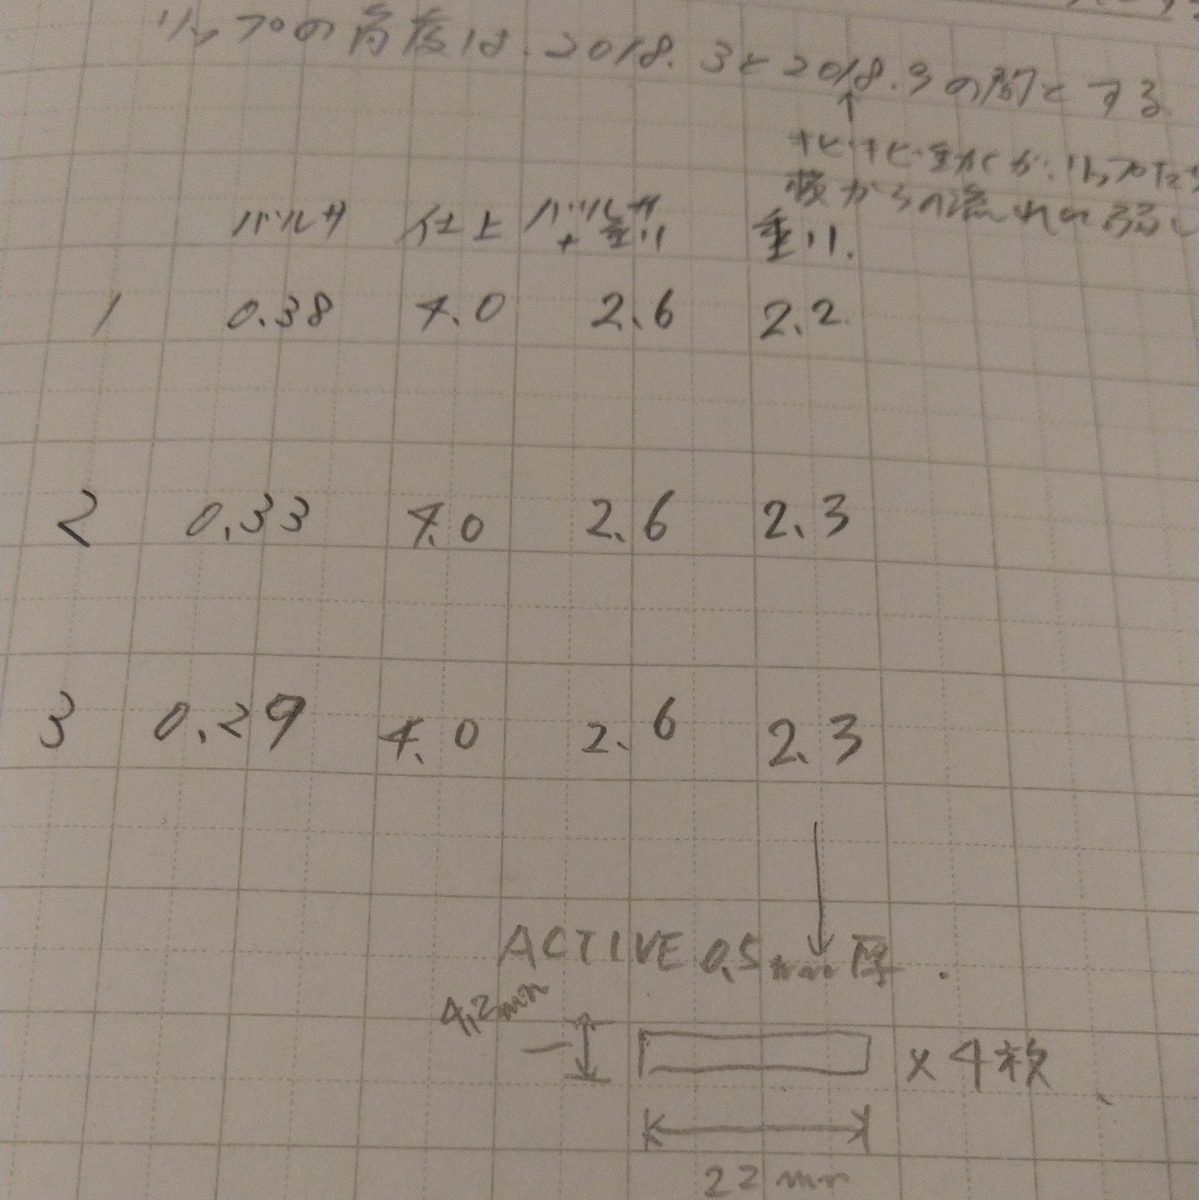 リップの角度は、2018.3と2018.9の間とする
キビキビ動くが、リップだけ
横からの流れに弱い
バルサ 仕上 バルサ+重り 重り.
1 0.38 4.0 2.6 2.2
2 0.33 4.0 2.6 2.3
3 0.29 4.0 2.6 2.3
ACTIVE 0.5mm厚.
4.2mm
×4枚
22mm